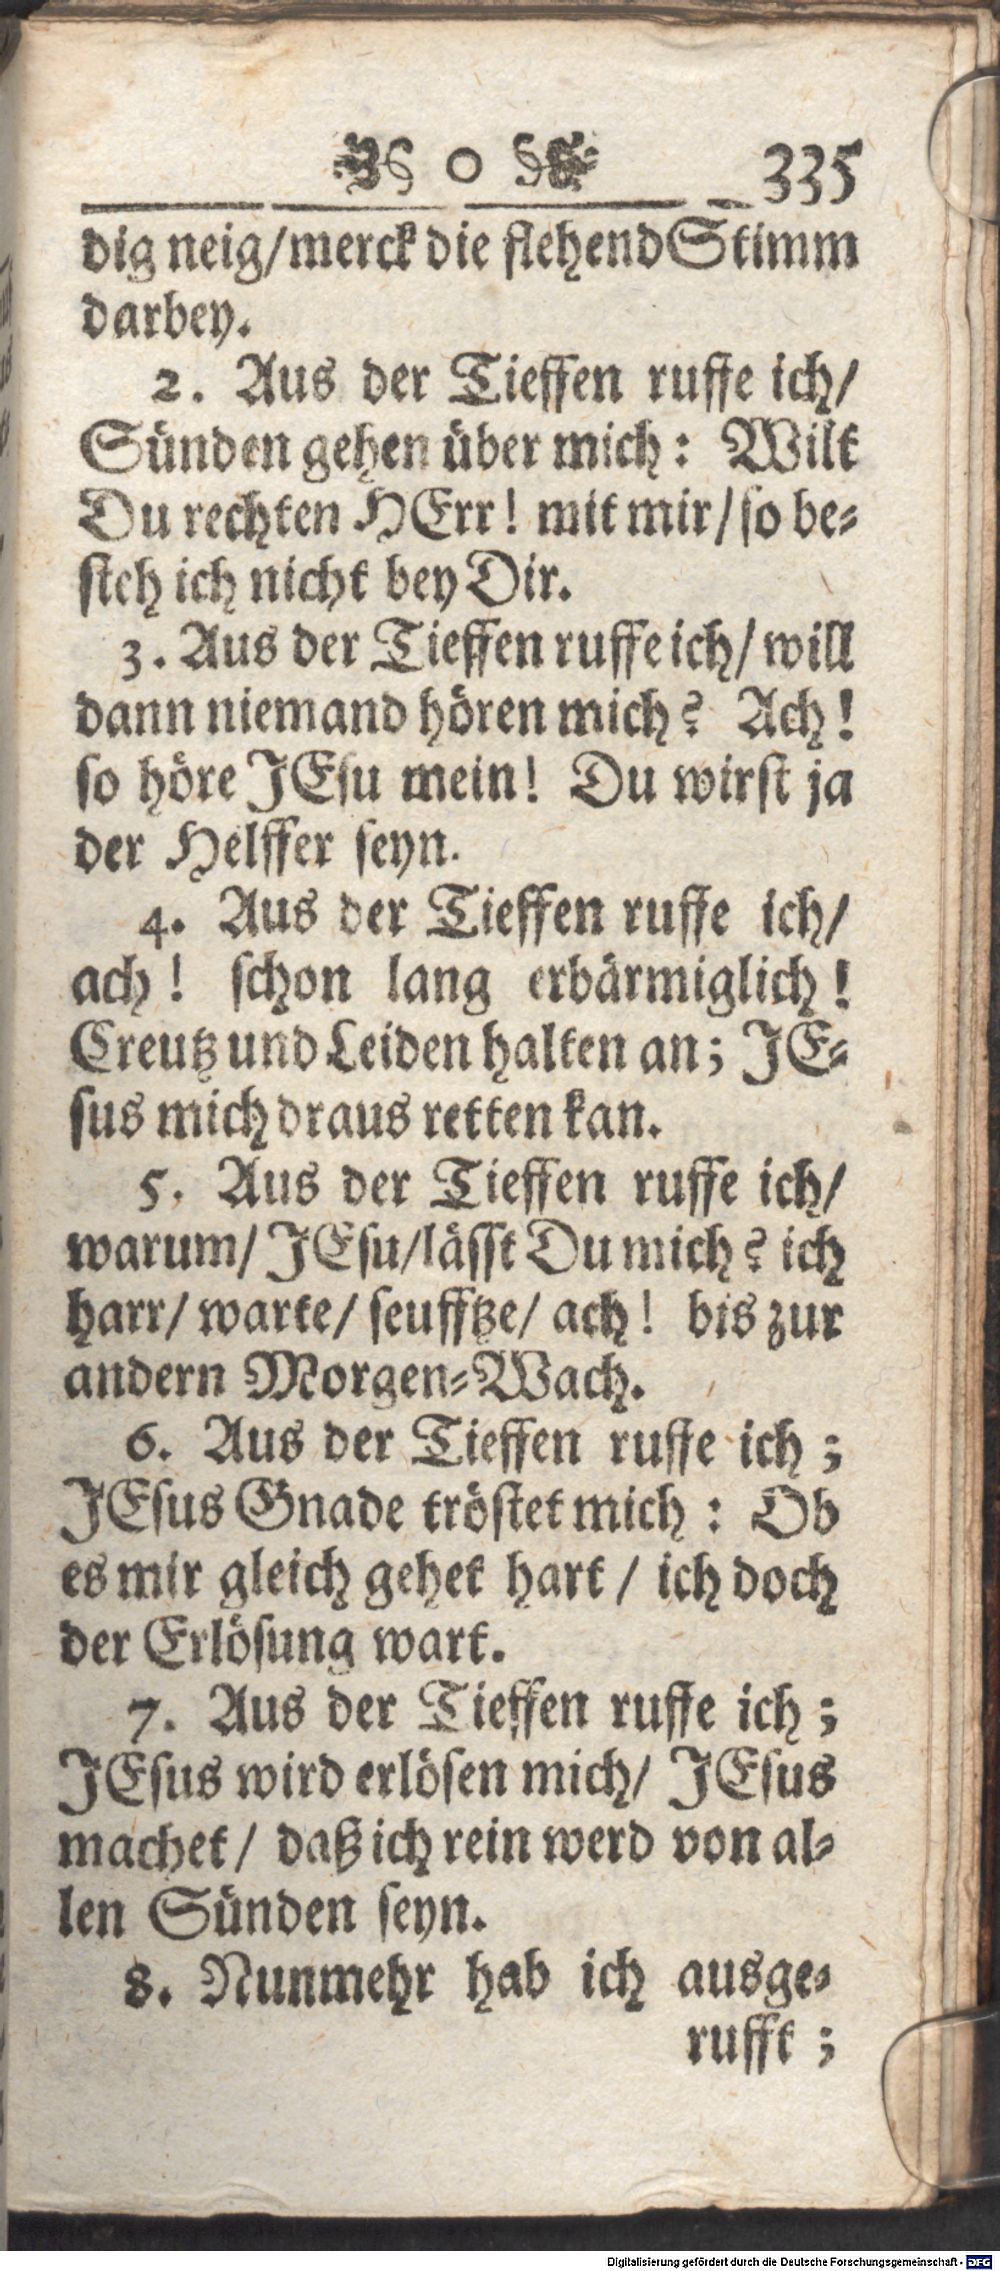 o 335
dig neig/merck die flehend Stimm
darbey.
2. Aus der Tieffen ruffe ich/
Sünden gehen über mich: Wilt
Du rechten HErr! mit mir/ so be-
steh ich nicht bey Dir.
3. Aus der Tieffen ruffe ich/ will
dann niemand hören mich? Ach!
so höre JEsu mein! Du wirst ja
der Helffer seyn.
4. Aus der Tieffen ruffe ich/
ach! schon lang erbärmiglich!
Creutz und Leiden halten an; JE-
sus mich draus retten kan.
5. Aus der Tieffen ruffe ich/
warum/ JEsu/lässt Du mich? ich
harr/ warte/ seufftze/ ach! bis zur
andern Morgen-Wach.
6. Aus der Tieffen ruffe ich;
JEsus Gnade tröstet mich: Ob
es mir gleich gehet hart / ich doch
der Erlösung wart.
7. Aus der Tieffen ruffe ich;
JEsus wird erlösen mich/ JEsus
machet/ daß ich rein werd von al-
len Sünden seyn.
8. Nunmehr hab ich ausge-
rufft;
Digitalisierung gefördert durch die Deutsche Forschungsgemeinschaft - DFG